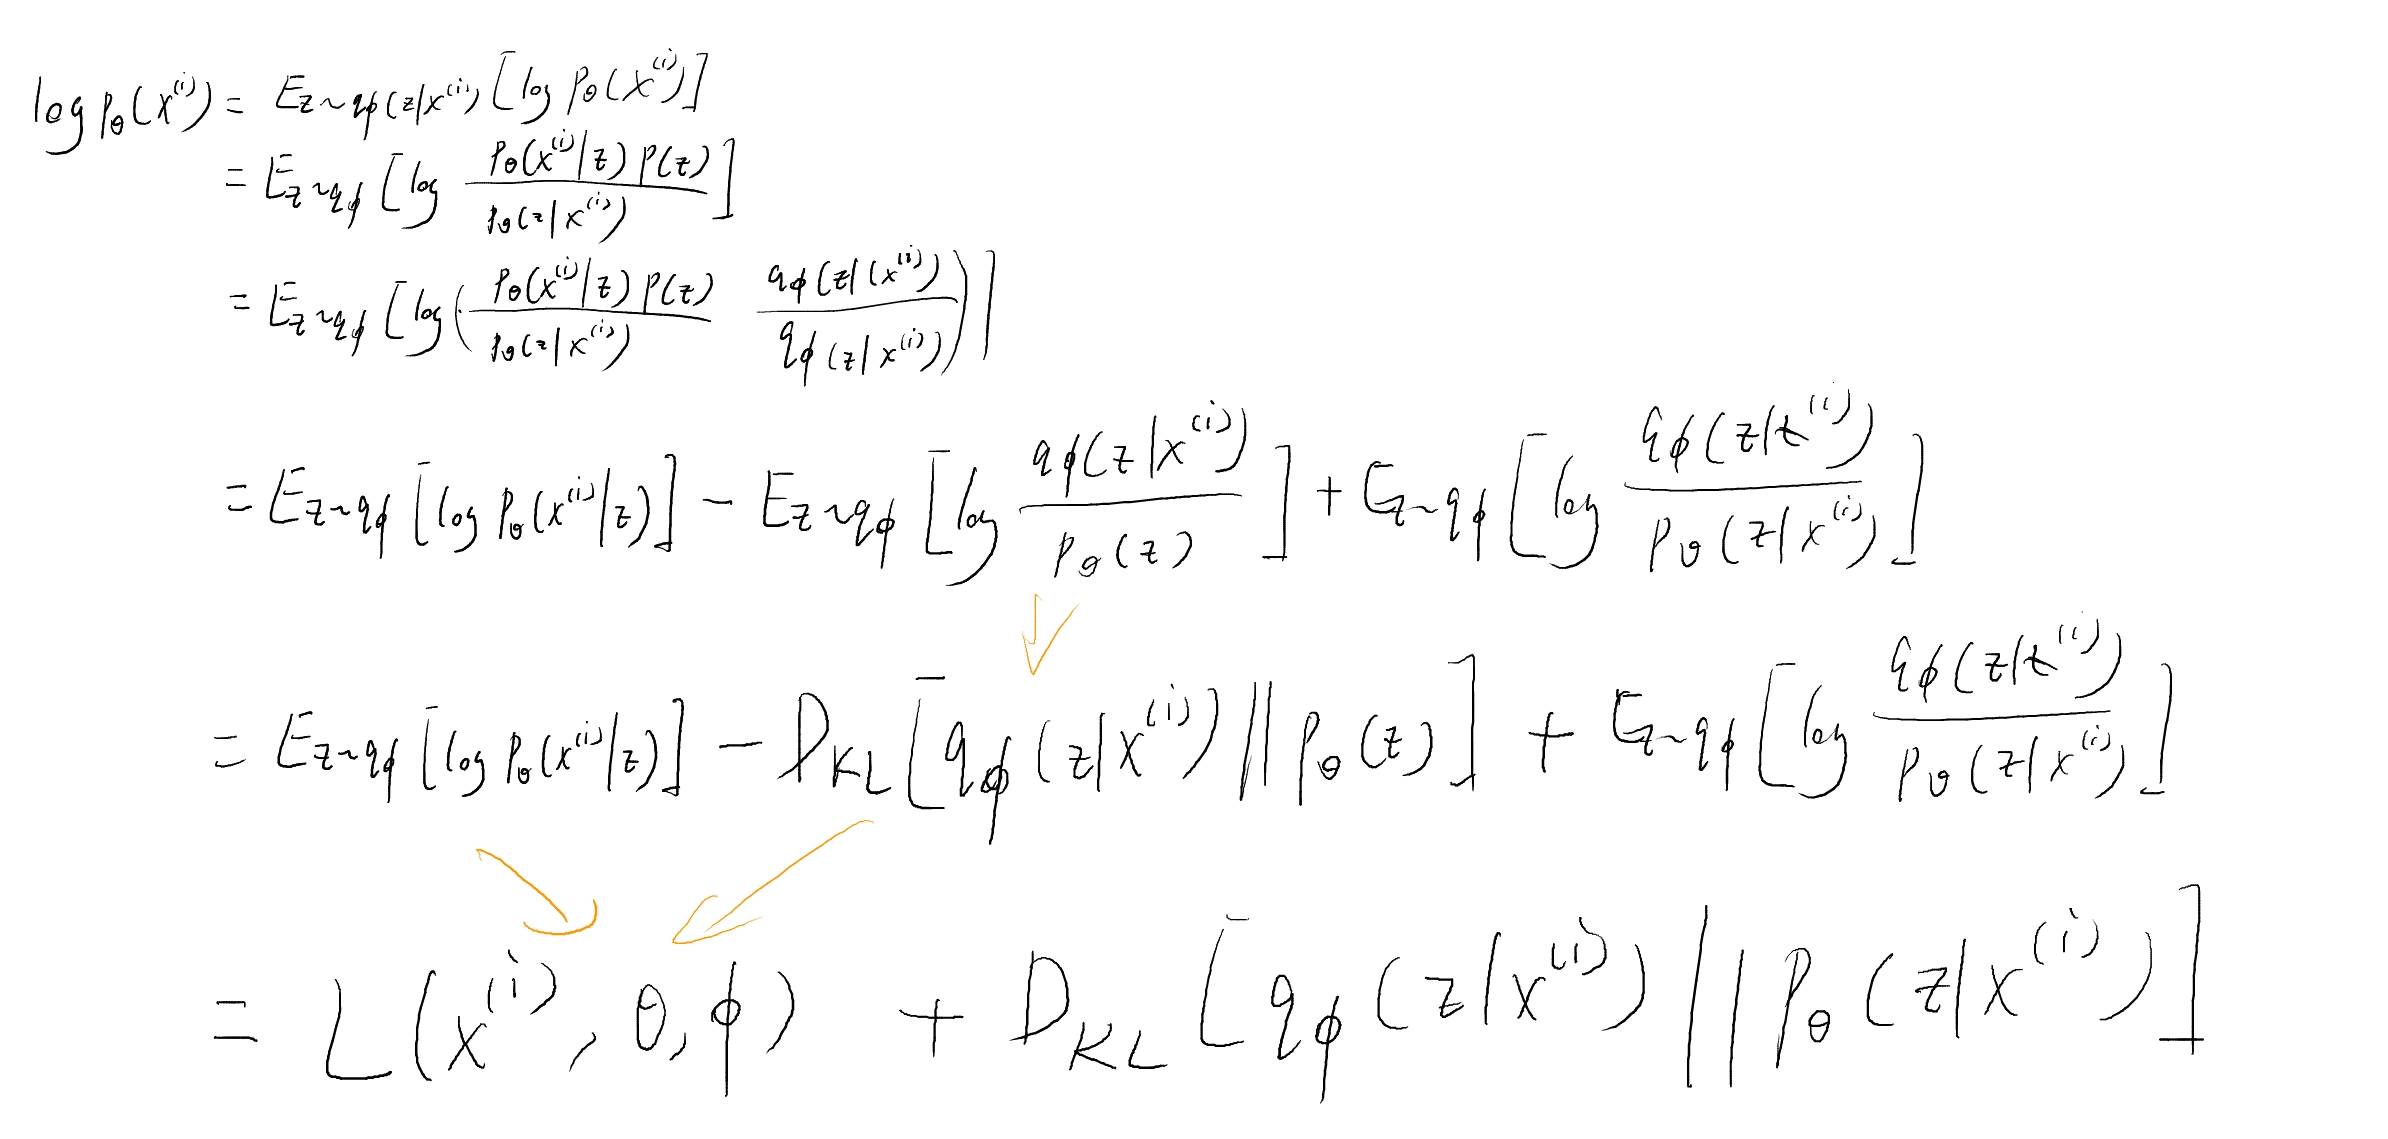 log pθ(x⁽ⁱ⁾) = E_{z~qφ(z|x⁽ⁱ⁾)} [log pθ(x⁽ⁱ⁾)]
= E_{z~qφ} [log \frac{pθ(x⁽ⁱ⁾|z) p(z)}{pθ(z|x⁽ⁱ⁾)}]
= E_{z~qφ} [log (\frac{pθ(x⁽ⁱ⁾|z) p(z)}{pθ(z|x⁽ⁱ⁾)} \frac{qφ(z|(x⁽ⁱ⁾)}{qφ(z|x⁽ⁱ⁾)})]
= E_{z~qφ} [log pθ(x⁽ⁱ⁾|z)] − E_{z~qφ} [log \frac{qφ(z|x⁽ⁱ⁾)}{pθ(z)}] + E_{z~qφ} [log \frac{qφ(z|x⁽ⁱ⁾)}{pθ(z|x⁽ⁱ⁾)}]
= E_{z~qφ} [log pθ(x⁽ⁱ⁾|z)] − D_{KL} [qφ(z|x⁽ⁱ⁾) || pθ(z)] + E_{z~qφ} [log \frac{qφ(z|x⁽ⁱ⁾)}{pθ(z|x⁽ⁱ⁾)}]
= L(x⁽ⁱ⁾, θ, φ) + D_{KL} [qφ(z|x⁽ⁱ⁾) || pθ(z|x⁽ⁱ⁾)]